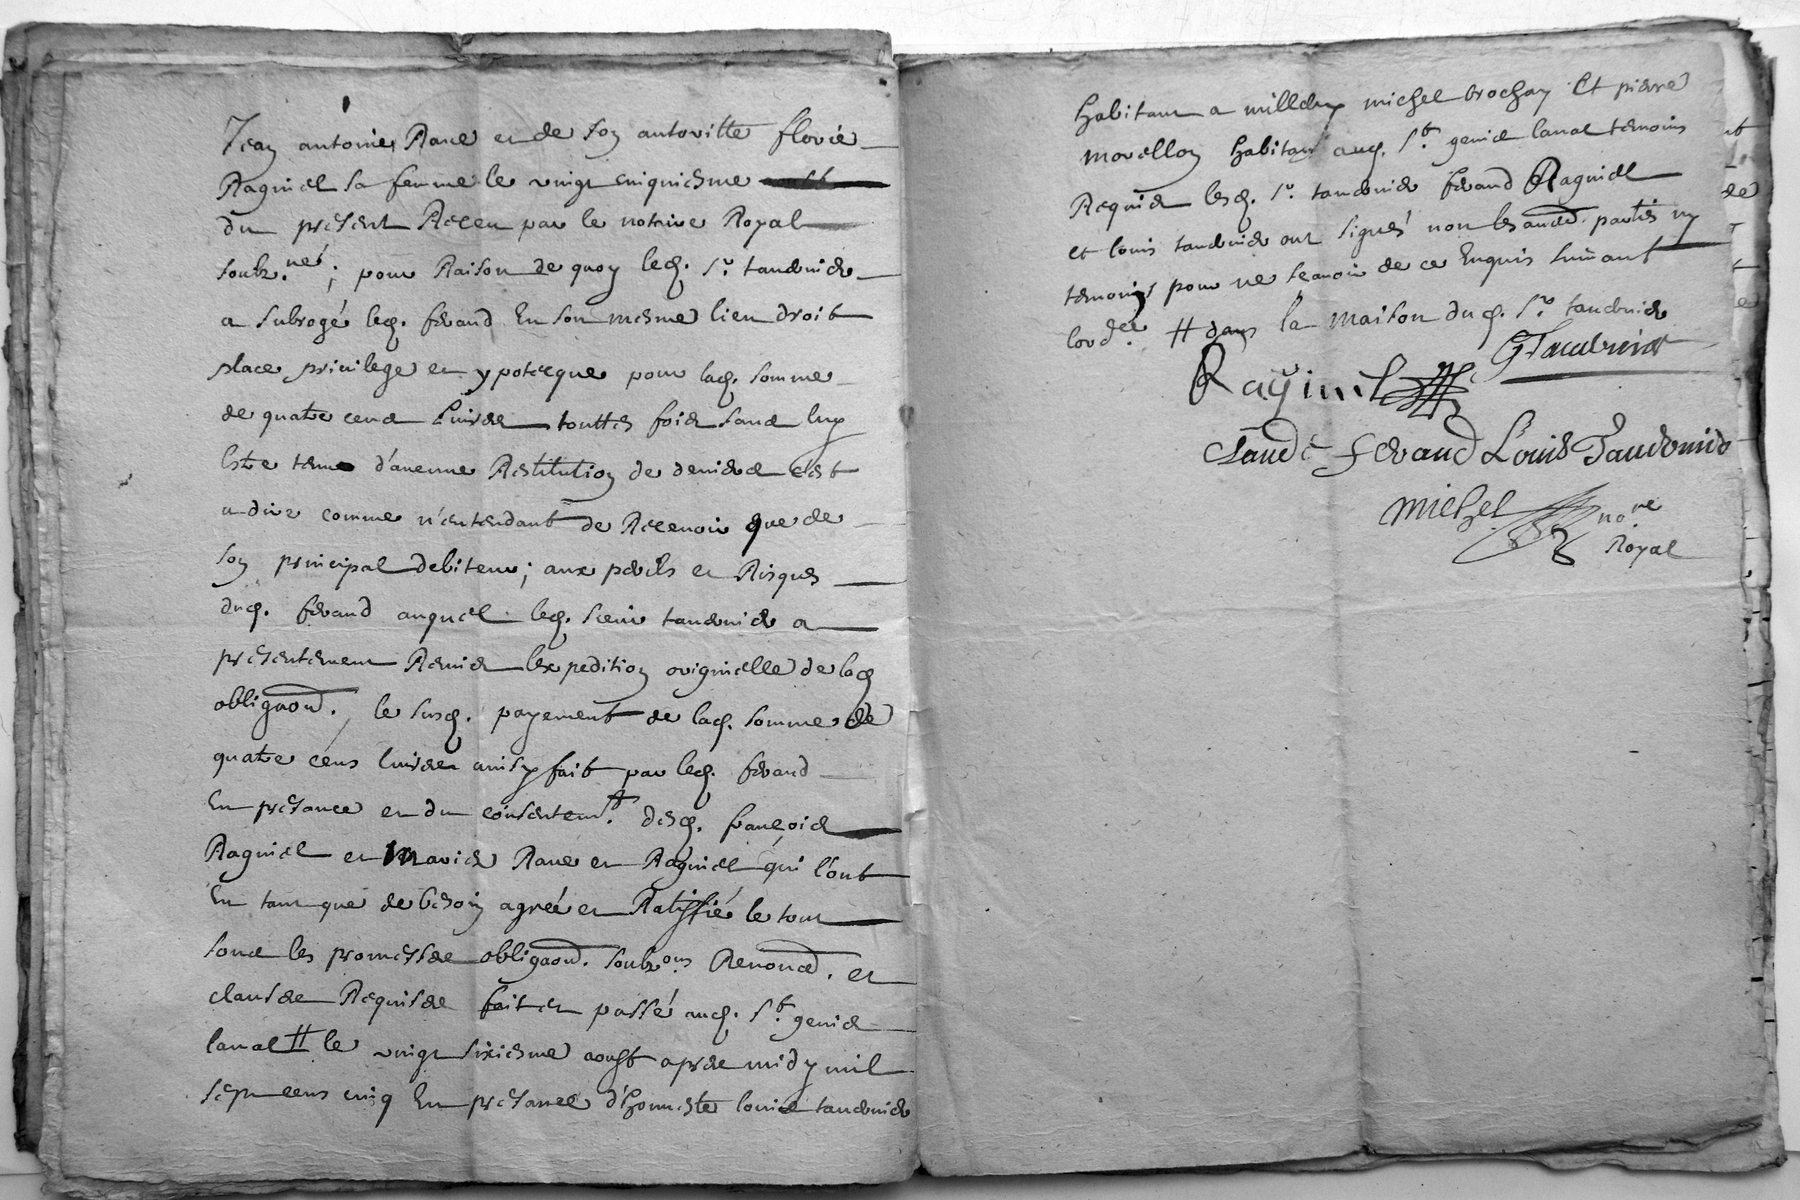 Jean antoine Rave et de son autoritte florie
Raginel sa femme le vingt cinquiesme
du present Receu par le notaire Royal
soubz.né ; pour Raison de quoy led. sr. tauernier
a subrogé led. feraud En son mesme lieu droit
place privilege et ypotecque pour lad. somme
de quatre cens livres touttes fois sans
estre tenu d'aucune Restitution de deniers c'est
a dire comme n'entendant de Recevoir que de
son principal debiteur ; aux perils et Risques
dud. feraud auquel led. sieur tauernier a
presentement Remis lexpedition originelle de lad
obligaon. , le susd. payement de lad. somme de
quatre cens livres ainsy fait par led. feraud
En presance et du consentemt. desd. françois
Raginel et Marie Rave et Raginel qui l'ont
En tant que de besoin agréé et Ratiffié le tout
sous les promesses obligaon. soubz.ons Renonced. et
clauses Requises fait et passé aud. st. genis
laual # le vingt sixiesme aoust apres midy mil
sept cens cinq En presance d'honneste louis tauernier
habitant a millery michel brochay Et pierre
morellon habitant aud. st. genis laual temoins
Requis lesd. sr. tauernier feraud Raginel
et louis tauernier ont signés non les autres parties ny
temoins pour ne scauoir de ce Enquis suiuant
lord.ce # dans la maison dud. sr. tauernier
Raginel GTauernier
Claude feraud Louis Tauernier
Michel no.re
Royal